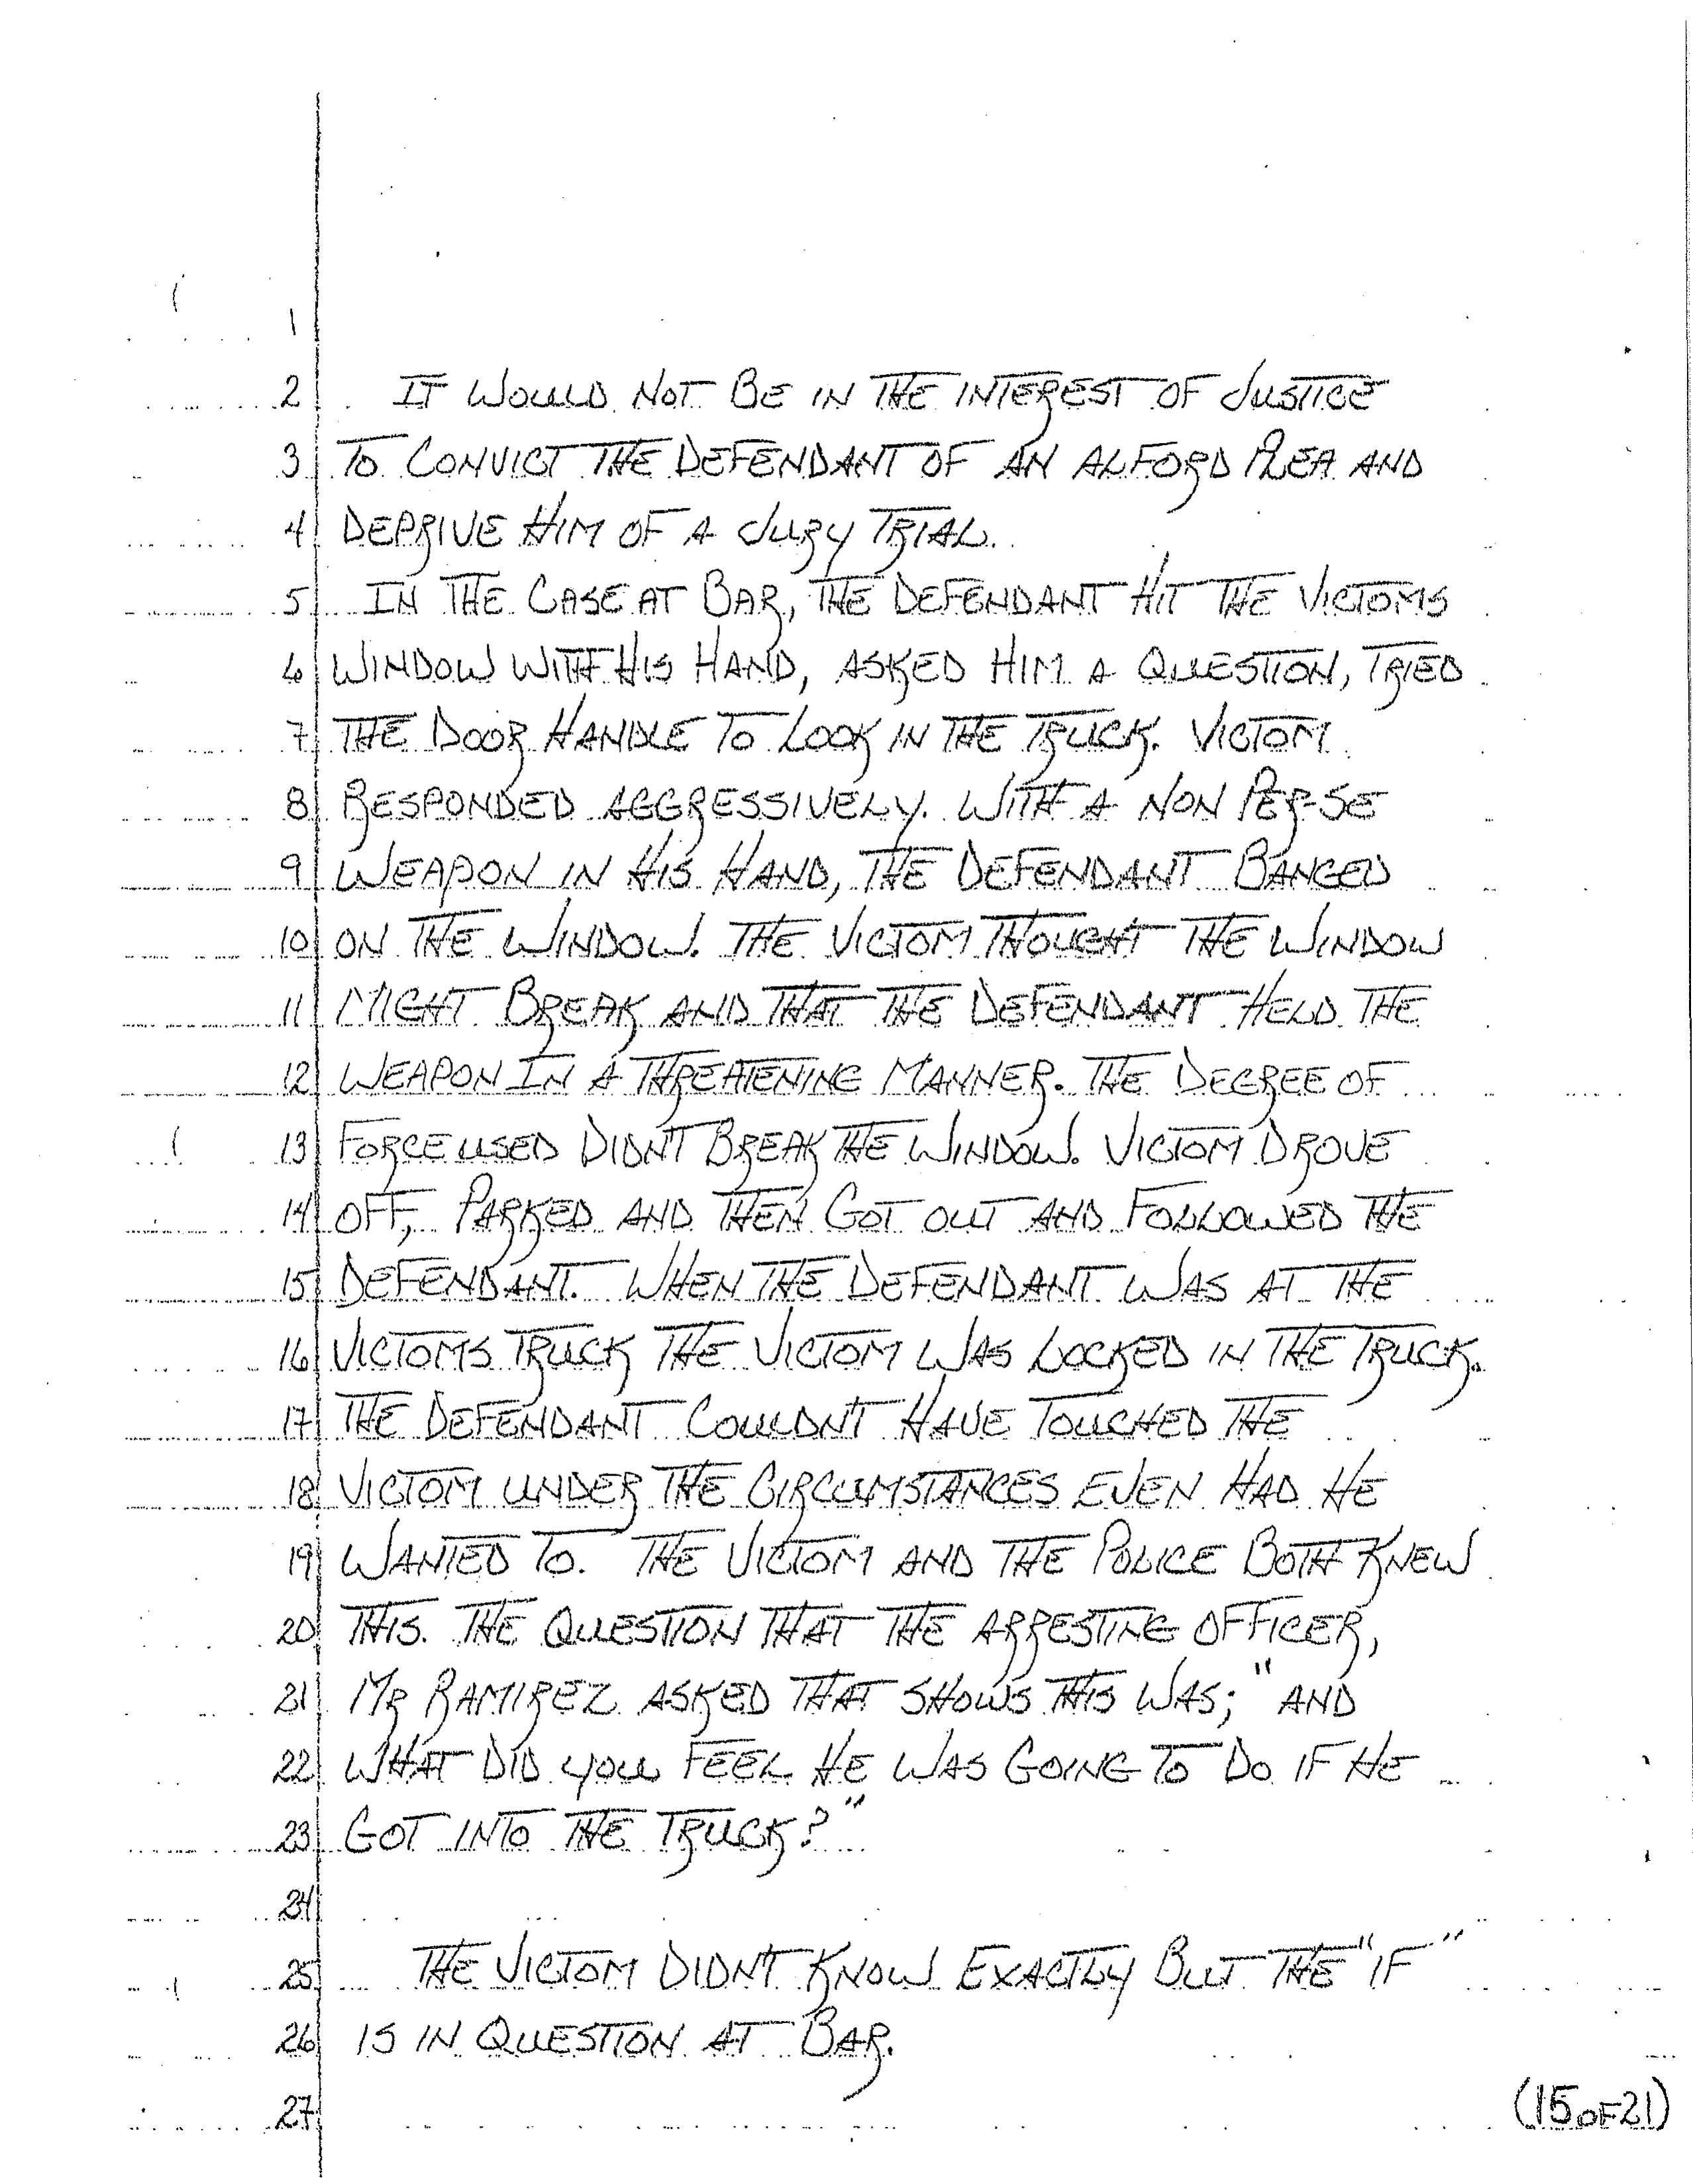 1
2 IT WOULD NOT BE IN THE INTEREST OF JUSTICE
3 TO CONVICT THE DEFENDANT OF AN ALFORD PLEA AND
4 DEPRIVE HIM OF A JURY TRIAL.
5 IN THE CASE AT BAR, THE DEFENDANT HIT THE VICTOMS
6 WINDOW WITH HIS HAND, ASKED HIM A QUESTION, TRIED
7 THE DOOR HANDLE TO LOOK IN THE TRUCK. VICTOM
8 RESPONDED AGGRESSIVELY. WITH A NON PER-SE
9 WEAPON IN HIS HAND, THE DEFENDANT BANGED
10 ON THE WINDOW. THE VICTOM THOUGHT THE WINDOW
11 MIGHT BREAK AND THAT THE DEFENDANT HELD THE
12 WEAPON IN A THREATENING MANNER. THE DEGREE OF
13 FORCE USED DIDN'T BREAK THE WINDOW. VICTOM DROVE
14 OFF, PARKED AND THEN GOT OUT AND FOLLOWED THE
15 DEFENDANT. WHEN THE DEFENDANT WAS AT THE
16 VICTOMS TRUCK THE VICTOM WAS LOCKED IN THE TRUCK.
17 THE DEFENDANT COULDN'T HAVE TOUCHED THE
18 VICTOM UNDER THE CIRCUMSTANCES EVEN HAD HE
19 WANTED TO. THE VICTOM AND THE POLICE BOTH KNEW
20 THIS. THE QUESTION THAT THE ARRESTING OFFICER,
21 MR RAMIREZ ASKED THAT SHOWS THIS WAS; "AND
22 WHAT DID YOU FEEL HE WAS GOING TO DO IF HE
23 GOT INTO THE TRUCK?"
24
25 THE VICTOM DIDN'T KNOW EXACTLY BUT THE "IF"
26 IS IN QUESTION AT BAR.
27
(15 OF 21)